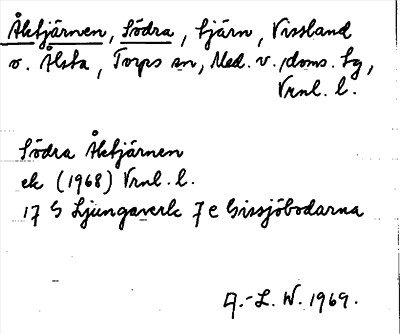 Åktjärnen, Södra, tjärn, Vissland
o. Ålsta, Torps sn, Med. v. doms. tg,
Vrnl. l.
Södra Åktjärnen
ek (1968) Vrnl. l.
17 G Ljungaverk 7 e Gissjöbodarna
A.-L. W. 1969.